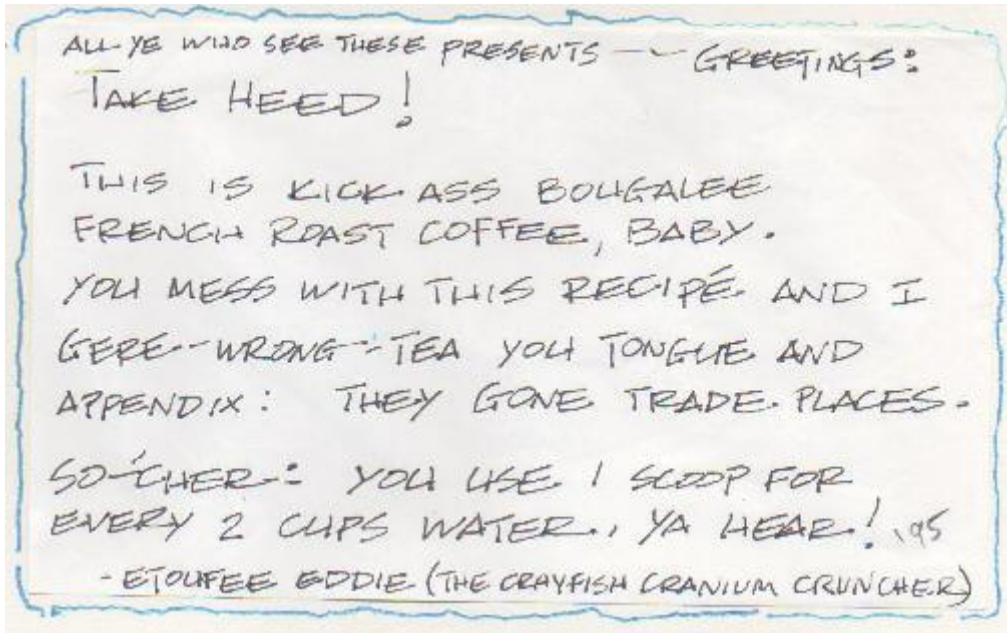 ALL YE WHO SEE THESE PRESENTS -- GREETINGS:
TAKE HEED!
THIS IS KICK-ASS BOUGALEE
FRENCH ROAST COFFEE, BABY.
YOU MESS WITH THIS RECIPÉ AND I
GERE--WRONG--TEA YOU TONGUE AND
APPENDIX: THEY GONE TRADE PLACES.
SO-CHER-: YOU USE 1 SCOOP FOR
EVERY 2 CUPS WATER, YA HEAR! '95
- ETOUFEE EDDIE (THE CRAYFISH CRANIUM CRUNCHER)